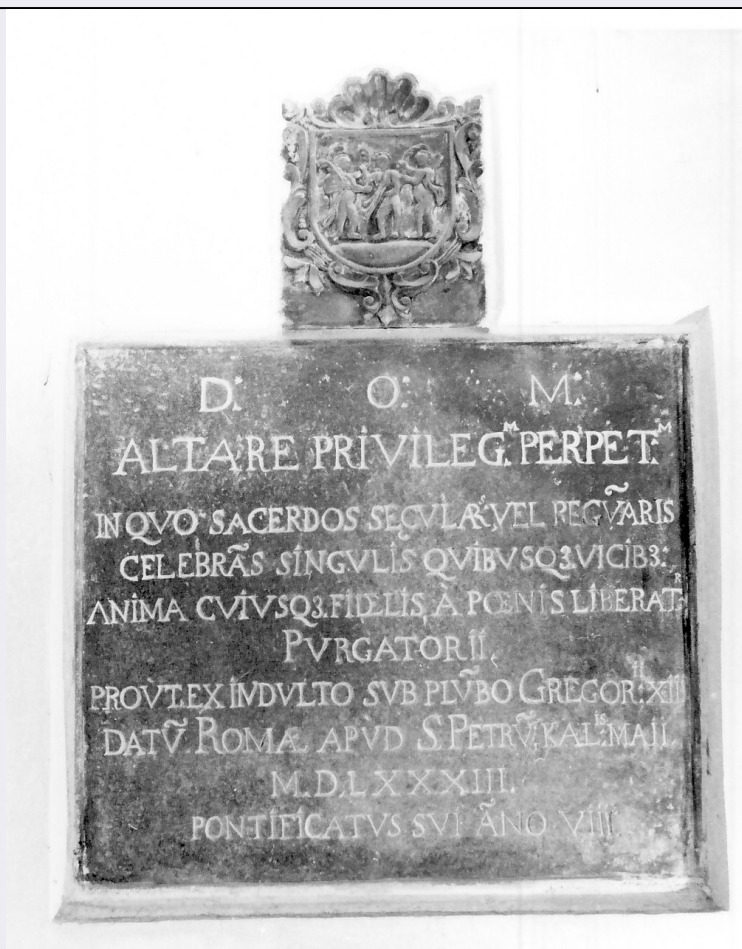 D: O: M:
ALTARE PRIVILEG.ᴹ PERPET:ᴹ
IN QVO SACERDOS SECVLARˢ VEL REGVL̃ARIS
CELEBRÃS SINGVLIS QVIBVSQ3. VICIB3:
ANIMA CVIVSQ3. FIDELIS, A PŒNIS LIBERAT.ᴿ
PVRGATORII.
PROVT. EX INDVLTO SVB PLṼBO GREGOR:ᴵᴵ XIII
DATṼ. ROMÆ APVD S. PETRṼ. KAL:ᴵˢ MAII.
M.D.LXXXIII.
PONTIFICATVS SVI ÃNO VIII